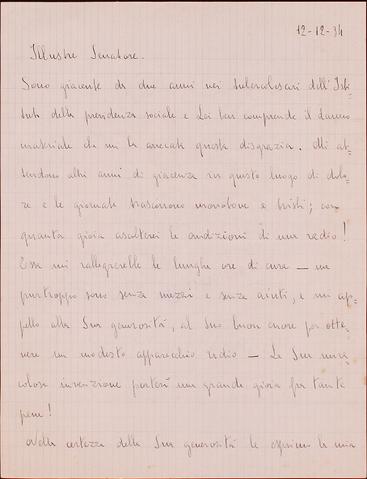 12-12-34
Illustre Senatore.
Sono giacente da due anni nei tubercolosari dell'Isti
tuto della previdenza sociale e Lei ben comprende il danno
materiale che mi ha arrecato questa disgrazia. Mi at
tendono altri anni di giacenza in questo luogo di dolo
re e le giornate trascorrono monotone e tristi; con
quanta gioia ascolterei le audizioni di una radio!
Essa mi rallegrerebbe le lunghe ore di cura - ma
purtroppo sono senza mezzi e senza aiuti, e mi ap
pello alla Sua generosità, al Suo buon cuore per otte
nere un modesto apparecchio radio - La Sua mira
colosa invenzione porterà una grande gioia fra tante
pene!
Nella certezza della Sua generosità le esprimo la mia